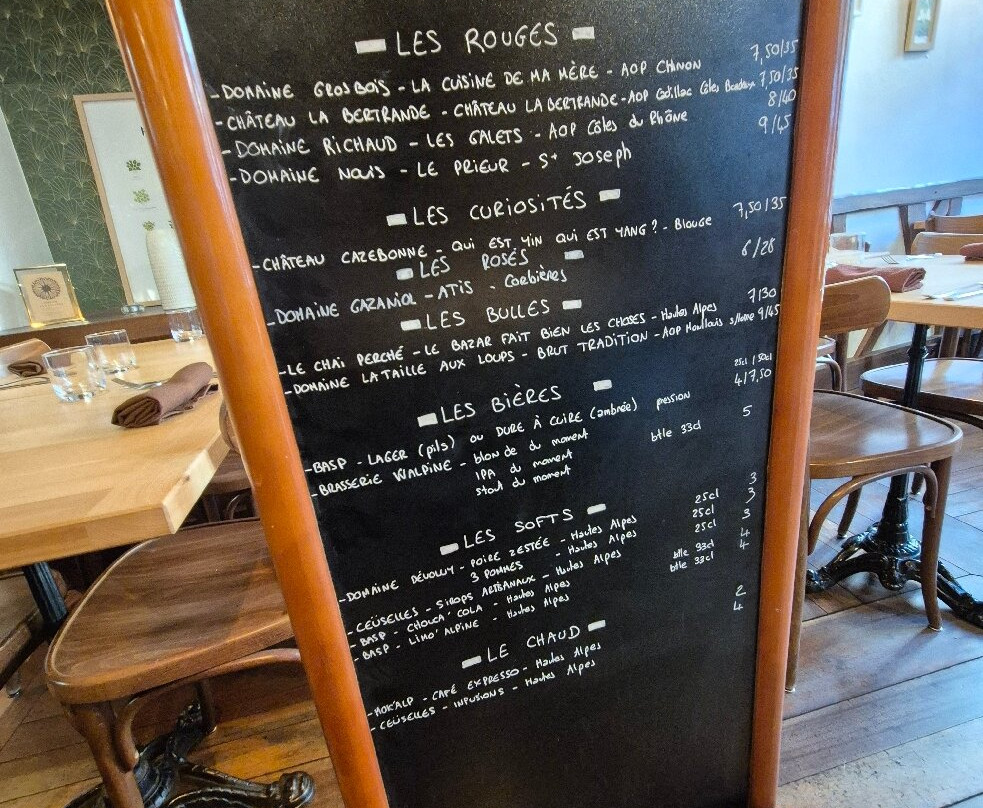 LES ROUGES
-DOMAINE GROSBOIS - LA CUISINE DE MA MÈRE - AOP CHINON 7,50/35
-CHÂTEAU LA BERTRANDE - CHÂTEAU LA BERTRANDE - AOP Cadillac Côtes Bordeaux 7,50/35
-DOMAINE RICHAUD - LES GALETS - AOP Côtes du Rhône 8/40
-DOMAINE - LE PRIEUR - St Joseph 9/45
LES CURIOSITÉS
-CHÂTEAU CAZEBONNE - QUI EST YIN QUI EST YANG? - Blouge 7,50/35
LES ROSÉS
-DOMAINE GAZANIOL - ATIS - Corbières 6/28
LES BULLES
-LE CHAI PERCHÉ - LE BAZAR FAIT BIEN LES CHOSES - Hautes Alpes 7/30
-DOMAINE LA TAILLE AUX LOUPS - BRUT TRADITION - AOP s/Loire 9/45
LES BIÈRES
25cl / 50cl
-BASP - LAGER (pils) ou DURE À CUIRE (ambrée) pression 4/7,50
-BRASSERIE WALPINE - blonde du moment btle 33cl 5
IPA du moment
stout du moment
LES SOFTS
-DOMAINE DÉVOLUY - POIRE ZESTÉE - Hautes Alpes 25cl 3
3 POMMES - Hautes Alpes 25cl 3
-CEÜSELLES - SIROPS ARTISANAUX - Hautes Alpes 25cl 3
-BASP - CHOUCA' COLA - Hautes Alpes btle 33cl 4
-BASP - LIMO' ALPINE - Hautes Alpes btle 33cl 4
LE CHAUD
-MOK'ALP - CAFÉ EXPRESSO - Hautes Alpes 2
-CEÜSELLES - INFUSIONS - Hautes Alpes 4